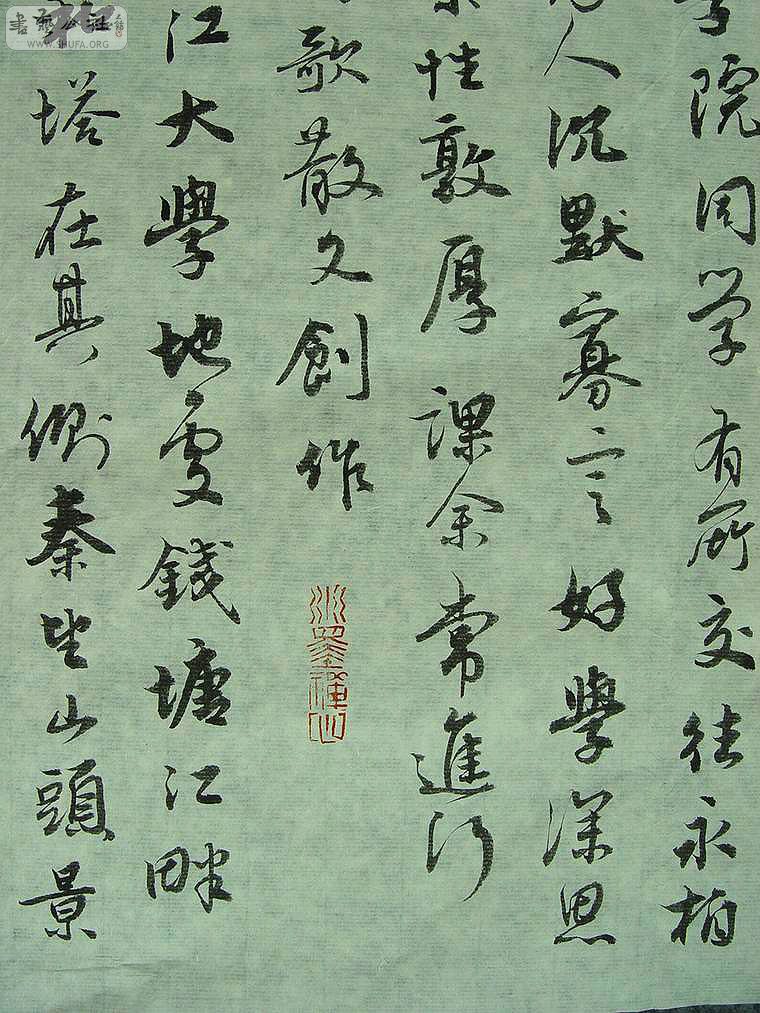 院同学有所交往永柏
人沉默寡言好學深思
性敦厚課余常進行
歌散文創作
江大學地处錢塘江畔
塔在其側秦望山頭景
水墨禅心
書藝公社
WWW.SHUFA.ORG